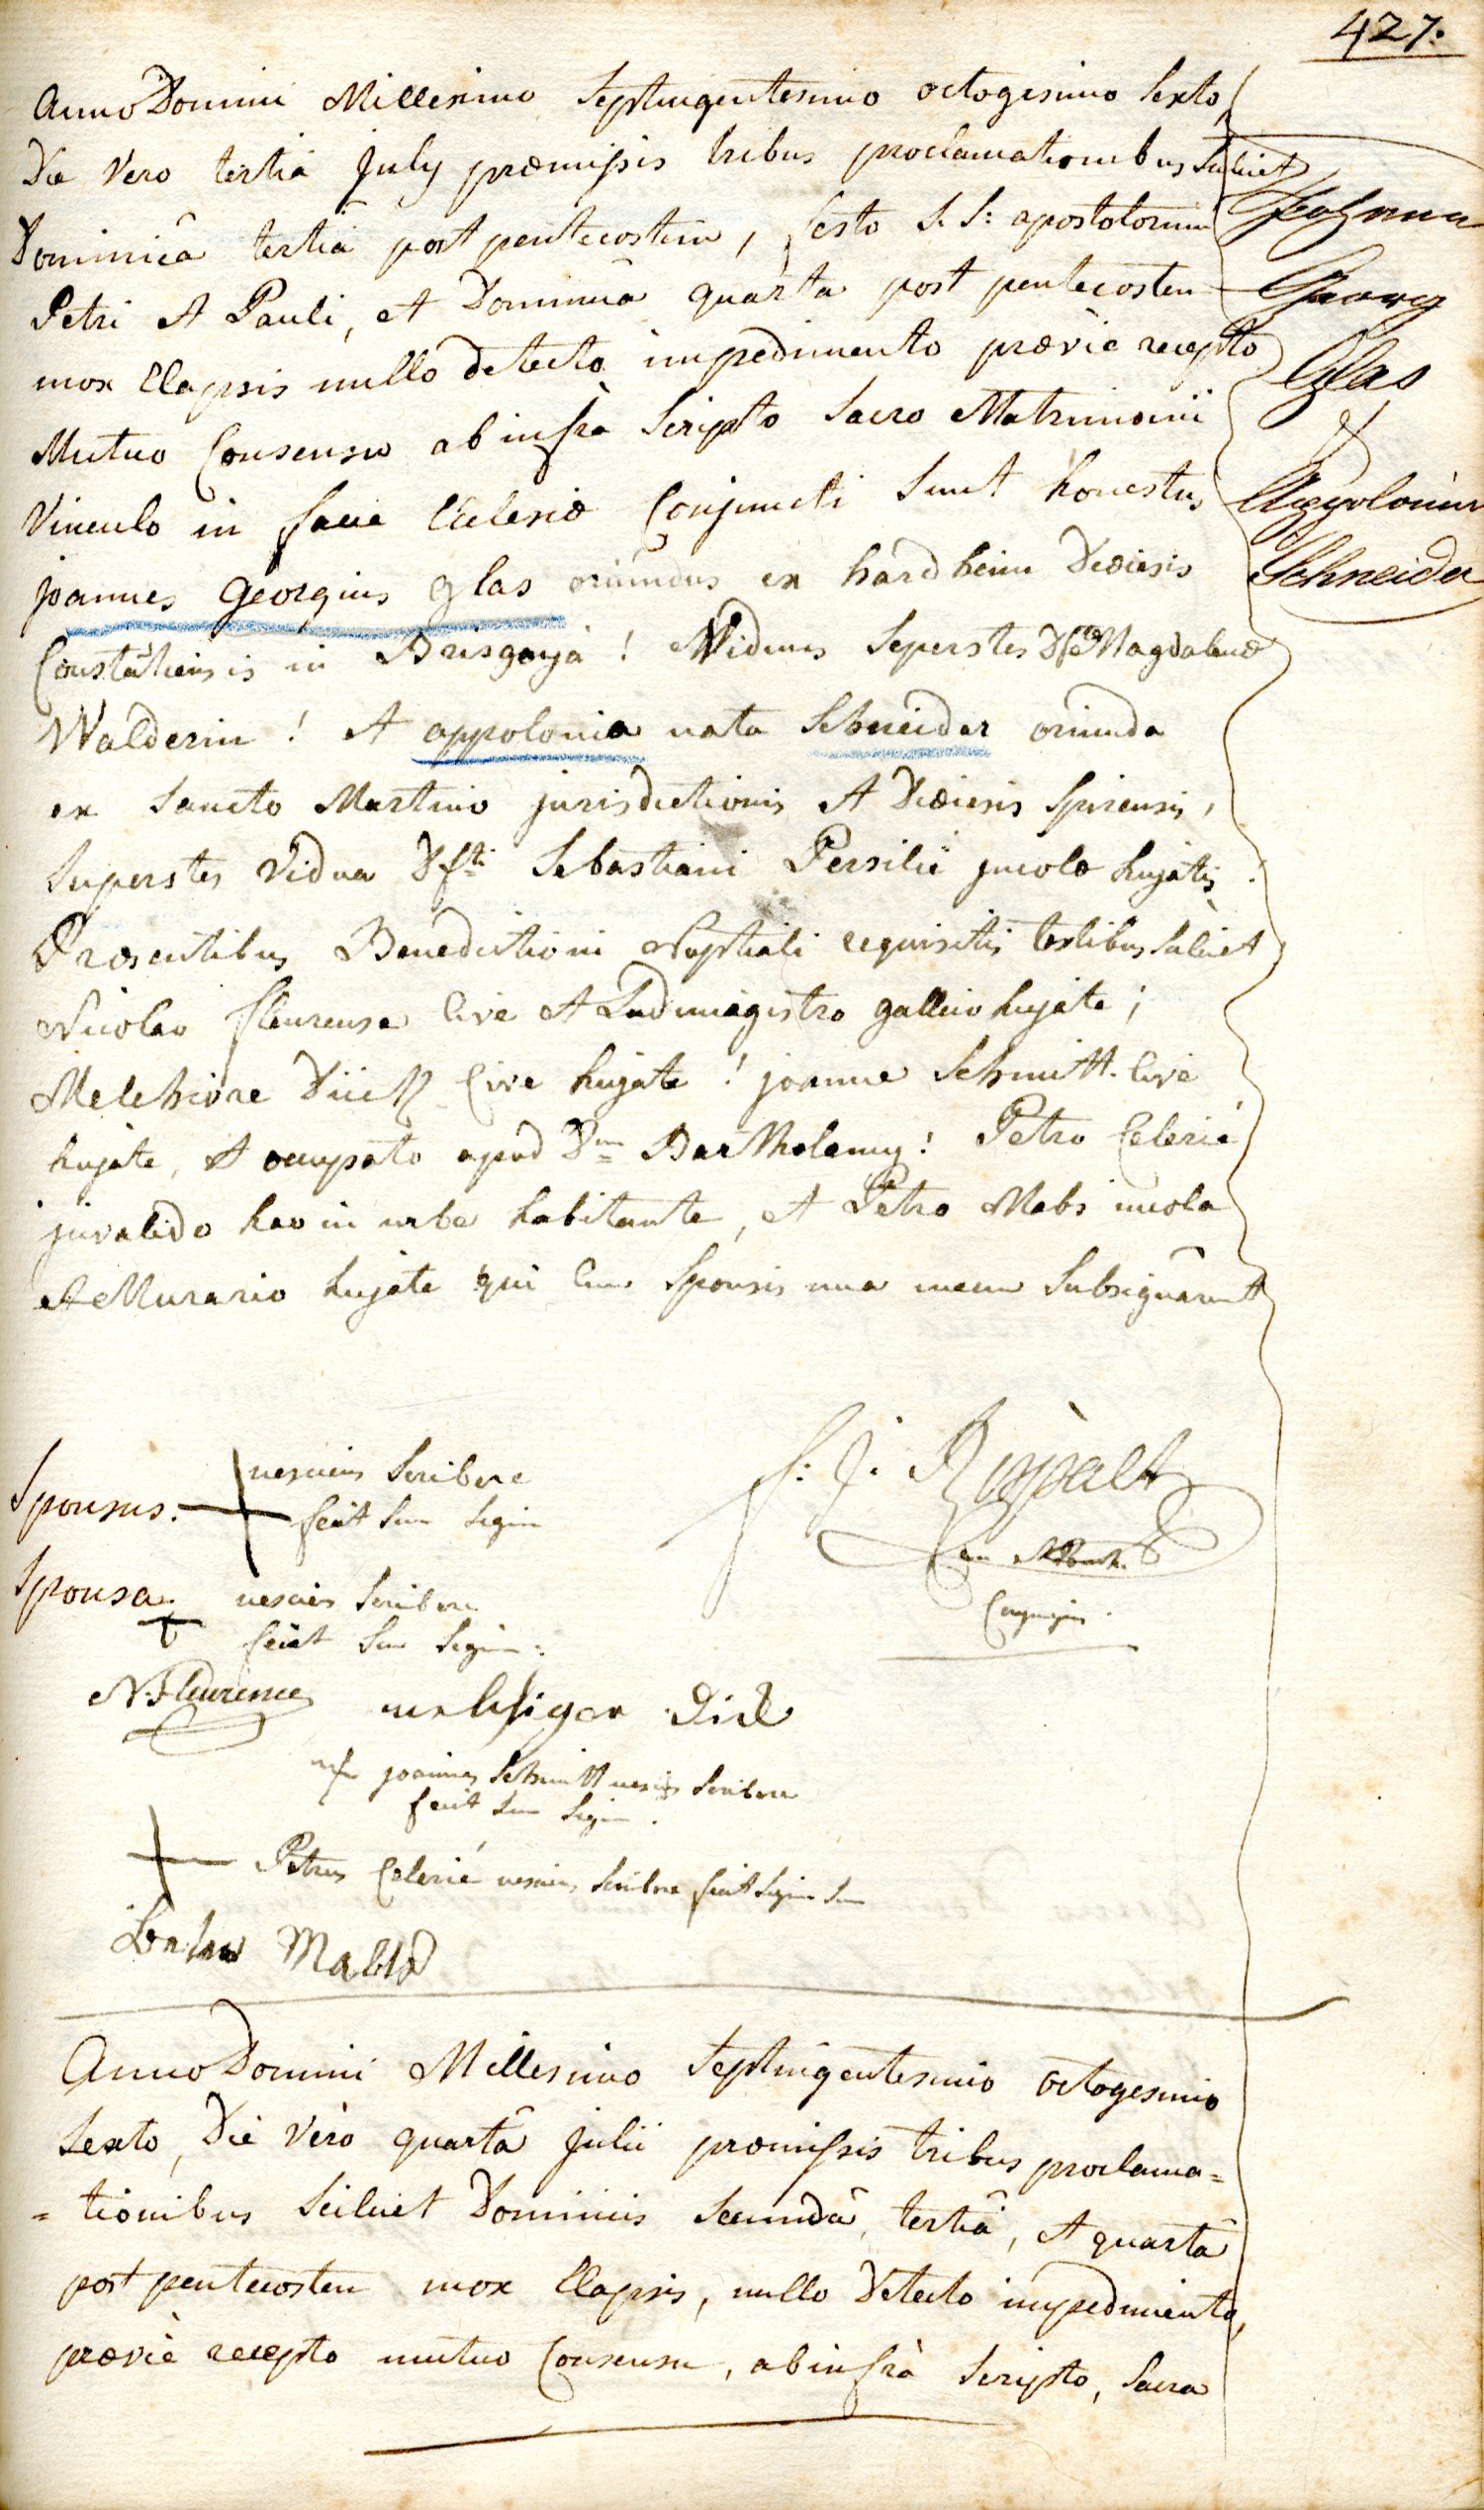 427.
Anno Domini Millesimo Septingentesimo octogesimo Sexto
Die Vero tertiâ July præmissis tribus proclamationibus Scilicet
Dominicâ tertiâ post pentecosten, festo S. S: apostolorum
Petri et Pauli, et Dominicâ quarta post pentecosten
mox Elapsis nullo detecto impedimento prævie recepto
Mutuo Consensu ab infrà Scripto Sacro Matrimonii
Vinculo in facie Eclesiæ Conjuncti Sunt honestus
joannes georgius glas oriundus ex hardheim Diœcesis
Constantiensis in Brisgoyja ! Widuus Seperstes Dftæ Magdalenæ
Walderin ! et appolonia nata Schneider oriunda
ex Sancto Martino jurisdictionis et Diœcesis Spirensis,
Superstes Vidua Dfti Sebastiani Persilié jncolæ hujatis.
Præsentibus Benedictioni Nuptiali requisitis testibus Scilicet
Nicolao fleurense Cive et Ludimagistro gallico hujate ;
Melchiore Dück Cive hujate ! joanne Schmitt Cive
hujate, et occupato apud Dnum Barthelemy ! Petro Celerié
jnvalido hac in urbe habitante, et Petro Mabs incola
et Murario hujate qui Cum Sponsis una mecum Subsignârunt
Johann
Georg
Glas
&
Appolonia
Schneider
Sponsus. nesciens Scribere
fecit Suu Signu
Sponsa. nesciens Scribere
fecit Suu Signu :
f: J. Ruppalt
N. Fleurence melchiger Dick
joannes Schmitt nesciens Scribere
fecit Suu Signu .
Petrus Celerié nesciens Scribere fecit Signu Suu
Mabs
Anno Domini Millesimo Septingentesimo octogesimo
Sexto, Die Vèro quartâ julii præmissis tribus proclama=
=tionibus Scilicet Dominicis Secundâ, tertiâ, et quartâ
post pentecosten mox Elapsis, nullo Detecto impedimento,
prævie recepto mutuo Consensu, ab infrà Scripto, Sacro